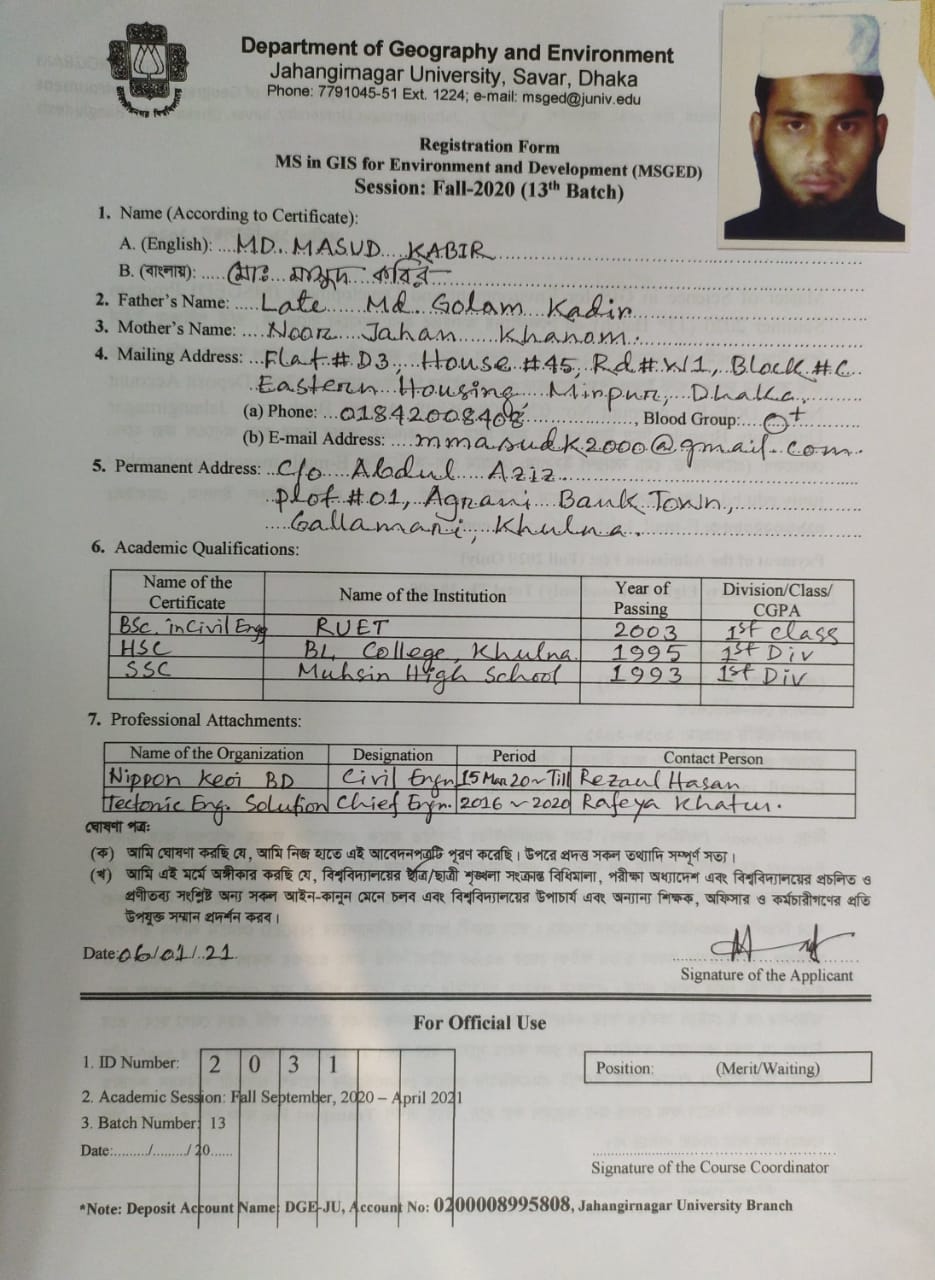 Department of Geography and Environment
Jahangirnagar University, Savar, Dhaka
Phone: 7791045-51 Ext. 1224; e-mail: msged@juniv.edu
Registration Form
MS in GIS for Environment and Development (MSGED)
Session: Fall-2020 (13th Batch)
1. Name (According to Certificate):
A. (English): MD. MASUD KABIR
B. (বাংলায়): মোঃ মাসুদ কবির
2. Father's Name: Late Md. Golam Kadir
3. Mother's Name: Noor Jahan Khanom.
4. Mailing Address: Flat # D3, House #45, Rd # W1, Block # C
Eastern Housing, Mirpur, Dhaka,
(a) Phone: 01842008408, Blood Group: O+
(b) E-mail Address: mmasudk2000@gmail.com.
5. Permanent Address: C/o Abdul Aziz
Plot #01, Agrani Bank Town,
Gallamari, Khulna.
6. Academic Qualifications:
Name of the Certificate Name of the Institution Year of Passing Division/Class/CGPA
BSc. in Civil Engg RUET 2003 1st class
HSC BL College, Khulna. 1995 1st Div
SSC Muhsin High School 1993 1st Div
7. Professional Attachments:
Name of the Organization Designation Period Contact Person
Nippon Keoi BD Civil Engn 15 Mar 20~Till Rezaul Hasan
Tectonic Eng. Solution Chief Engn. 2016 ~ 2020 Rafeya Khatun.
ঘোষণা পত্রঃ
(ক) আমি ঘোষণা করছি যে, আমি নিজ হাতে এই আবেদনপত্রটি পূরণ করেছি। উপরে প্রদত্ত সকল তথ্যাদি সম্পূর্ণ সত্য।
(খ) আমি এই মর্মে অঙ্গীকার করছি যে, বিশ্ববিদ্যালয়ের ছাত্র/ছাত্রী শৃঙ্খলা সংক্রান্ত বিধিমালা, পরীক্ষা অধ্যাদেশ এবং বিশ্ববিদ্যালয়ের প্রচলিত ও
প্রণীতব্য সংশ্লিষ্ট অন্য সকল আইন-কানুন মেনে চলব এবং বিশ্ববিদ্যালয়ের উপাচার্য এবং অন্যান্য শিক্ষক, অফিসার ও কর্মচারীগণের প্রতি
উপযুক্ত সম্মান প্রদর্শন করব।
Date: 06/01/21
Signature of the Applicant
For Official Use
1. ID Number: 2 0 3 1
Position: (Merit/Waiting)
2. Academic Session: Fall September, 2020 – April 2021
3. Batch Number: 13
Date:......../......../20......
Signature of the Course Coordinator
*Note: Deposit Account Name: DGE-JU, Account No: 0200008995808, Jahangirnagar University Branch